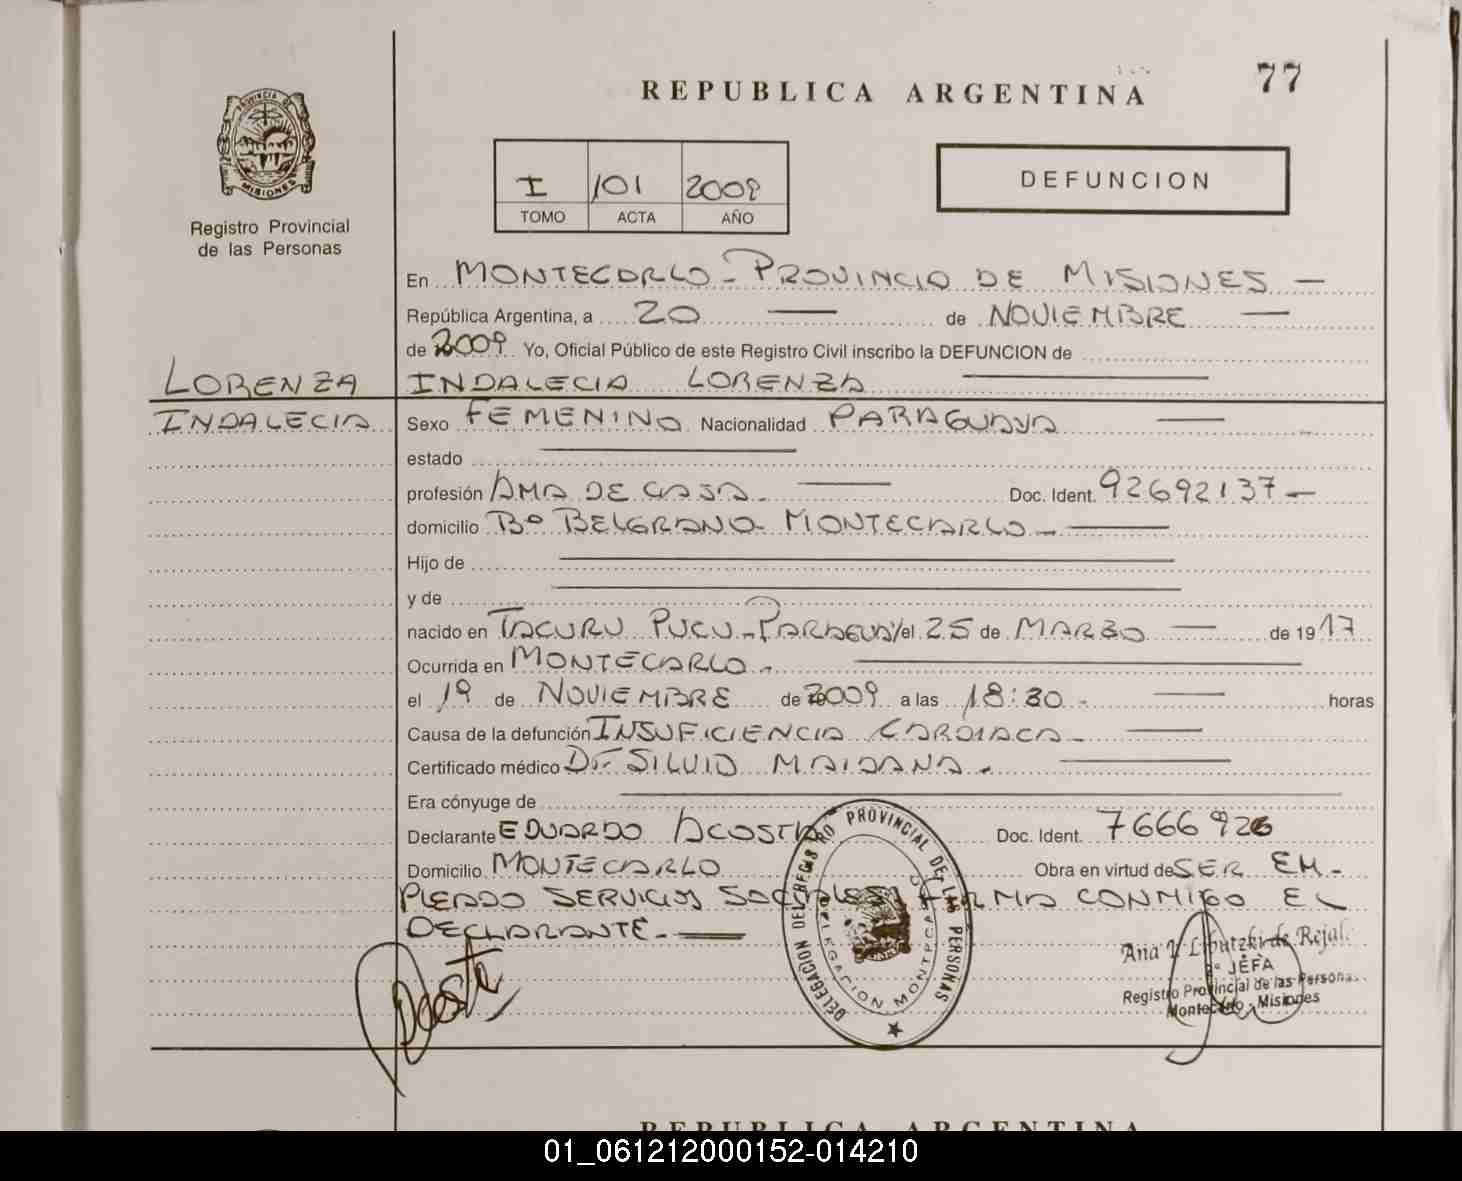 77
REPUBLICA ARGENTINA
PROVINCIA DE
MISIONES
Registro Provincial
de las Personas
I /101 2009
TOMO ACTA AÑO
DEFUNCION
En MONTECARLO - PROVINCIA DE MISIONES —
República Argentina, a 20 — de NOVIEMBRE —
de 2009 Yo, Oficial Público de este Registro Civil inscribo la DEFUNCION de
LORENZA
INDALECIA
INDALECIA LORENZA —
Sexo FEMENINO Nacionalidad PARAGUAYA —
estado —
profesión AMA DE CASA - — Doc. Ident. 92692137 —
domicilio Bº BELGRANO - MONTECARLO - —
Hijo de —
y de —
nacido en TACURU PUCU - PARAGUAY el 25 de MARZO — de 1917
Ocurrida en MONTECARLO - —
el 19 de NOVIEMBRE de 2009 a las 18:30 - — horas
Causa de la defunción INSUFICIENCIA CARDIACA - —
Certificado médico Dr. SILVIO MAIDANA - —
Era cónyuge de —
Declarante EDUARDO ACOSTA Doc. Ident. 7666926
Domicilio MONTECARLO Obra en virtud de SER EM-
PLEADO SERVICIOS SOCIALES FIRMA CONMIGO EL
DECLARANTE - —
Acosta
DELEGACION DEL REGISTRO PROVINCIAL DE LAS PERSONAS
DELEGACION MONTECARLO
Ana I. Libutzki de Rejal
JEFA
Registro Provincial de las Personas
Montecarlo - Misiones
REPUBLICA ARGENTINA
01_061212000152-014210